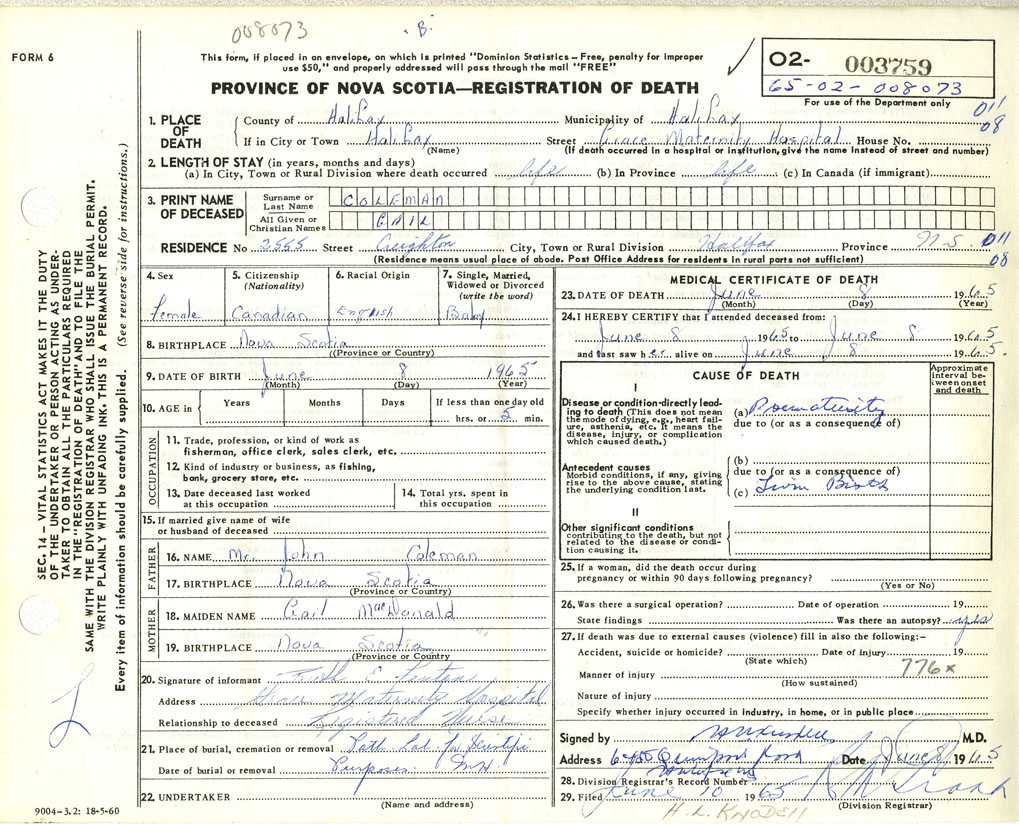 008073 "B"
FORM 6
This form, if placed in an envelope, on which is printed "Dominion Statistics – Free, penalty for improper
use $50," and properly addressed will pass through the mail "FREE"
PROVINCE OF NOVA SCOTIA—REGISTRATION OF DEATH
O2- 003759
65-02-008073
For use of the Department only
011
08
1. PLACE OF DEATH
County of Halifax Municipality of Halifax
If in City or Town Halifax Street Grace Maternity Hospital House No.
(Name) (If death occurred in a hospital or institution, give the name instead of street and number)
2. LENGTH OF STAY (in years, months and days)
(a) In City, Town or Rural Division where death occurred life (b) In Province life (c) In Canada (if immigrant)
3. PRINT NAME OF DECEASED
Surname or Last Name COLEMAN
All Given or Christian Names GAIL
RESIDENCE No 2565 Street Creighton City, Town or Rural Division Halifax Province N.S. 011
(Residence means usual place of abode. Post Office Address for residents in rural parts not sufficient) 08
4. Sex
Female
5. Citizenship
(Nationality)
Canadian
6. Racial Origin
English
7. Single, Married,
Widowed or Divorced
(write the word)
Baby
8. BIRTHPLACE Nova Scotia
(Province or Country)
9. DATE OF BIRTH June 8 1965
(Month) (Day) (Year)
10. AGE in Years Months Days If less than one day old
hrs. or 5 min.
OCCUPATION
11. Trade, profession, or kind of work as
fisherman, office clerk, sales clerk, etc.
12. Kind of industry or business, as fishing,
bank, grocery store, etc.
13. Date deceased last worked
at this occupation
14. Total yrs. spent in
this occupation
15. If married give name of wife
or husband of deceased
FATHER
16. NAME Mr. John Coleman
17. BIRTHPLACE Nova Scotia
(Province or Country)
MOTHER
18. MAIDEN NAME Gail MacDonald
19. BIRTHPLACE Nova Scotia
(Province or Country)
20. Signature of informant Ruth E.
Address Grace Maternity Hospital
Relationship to deceased Registered Nurse
21. Place of burial, cremation or removal Path Lab for
Date of burial or removal Purposes
22. UNDERTAKER
(Name and address)
9004-3.2: 18-5-60
MEDICAL CERTIFICATE OF DEATH
23. DATE OF DEATH June 8 1965
(Month) (Day) (Year)
24. I HEREBY CERTIFY that I attended deceased from:
June 8 1965 to June 8 1965
and last saw her alive on June 8 1965.
CAUSE OF DEATH
Approximate
interval be-
tween onset
and death
I
Disease or condition directly lead-
ing to death (This does not mean
the mode of dying, e.g., heart fail-
ure, asthenia, etc. It means the
disease, injury, or complication
which caused death.)
(a) Prematurity
due to (or as a consequence of)
Antecedent causes
Morbid conditions, if any, giving
rise to the above cause, stating
the underlying condition last.
(b)
due to (or as a consequence of)
(c) Twin Birth
II
Other significant conditions
contributing to the death, but not
related to the disease or condi-
tion causing it.
25. If a woman, did the death occur during
pregnancy or within 90 days following pregnancy?
(Yes or No)
26. Was there a surgical operation? Date of operation 19
State findings Was there an autopsy? yes
27. If death was due to external causes (violence) fill in also the following:–
Accident, suicide or homicide? Date of injury 19
(State which)
Manner of injury 776x
(How sustained)
Nature of injury
Specify whether injury occurred in industry, in home, or in public place
Signed by M.D.
Address Road Date June 8 1965
28. Division Registrar's Record Number
29. Filed June 10 1965
(Division Registrar)
H. L. KNODELL
SEC. 14 – VITAL STATISTICS ACT MAKES IT THE DUTY
OF THE UNDERTAKER OR PERSON ACTING AS UNDER-
TAKER TO OBTAIN ALL THE PARTICULARS REQUIRED
IN THE "REGISTRATION OF DEATH" AND TO FILE THE
SAME WITH THE DIVISION REGISTRAR WHO SHALL ISSUE THE BURIAL PERMIT.
WRITE PLAINLY WITH UNFADING INK. THIS IS A PERMANENT RECORD.
Every item of information should be carefully supplied. (See reverse side for instructions.)